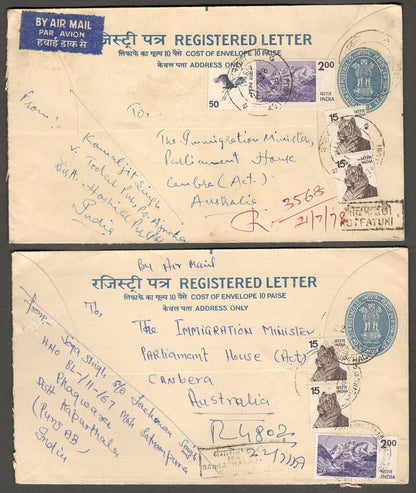 BY AIR MAIL
PAR AVION
हवाई डाक से
रजिस्ट्री पत्र REGISTERED LETTER
लिफाफे का मूल्य 10 पैसे COST OF ENVELOPE 10 PAISE
केवल पता ADDRESS ONLY
50
2.00
भारत
INDIA
15
15
From:-
Kamaljit Singh
India
To,
The Immigration Minister,
Parliament House
Canbra (Act.)
Australia
R. 3568
21/7/78
By Air Mail
रजिस्ट्री पत्र REGISTERED LETTER
लिफाफे का मूल्य 10 पैसे COST OF ENVELOPE 10 PAISE
केवल पता ADDRESS ONLY
From:-
Singh S/o Lachman Singh
Phagwara
Distt Kapurthala
(Punjab)
India
To,
The Immigration Minister
Parliament House (Act)
Canbera
Australia
R 4802
15
15
2.00
भारत
INDIA